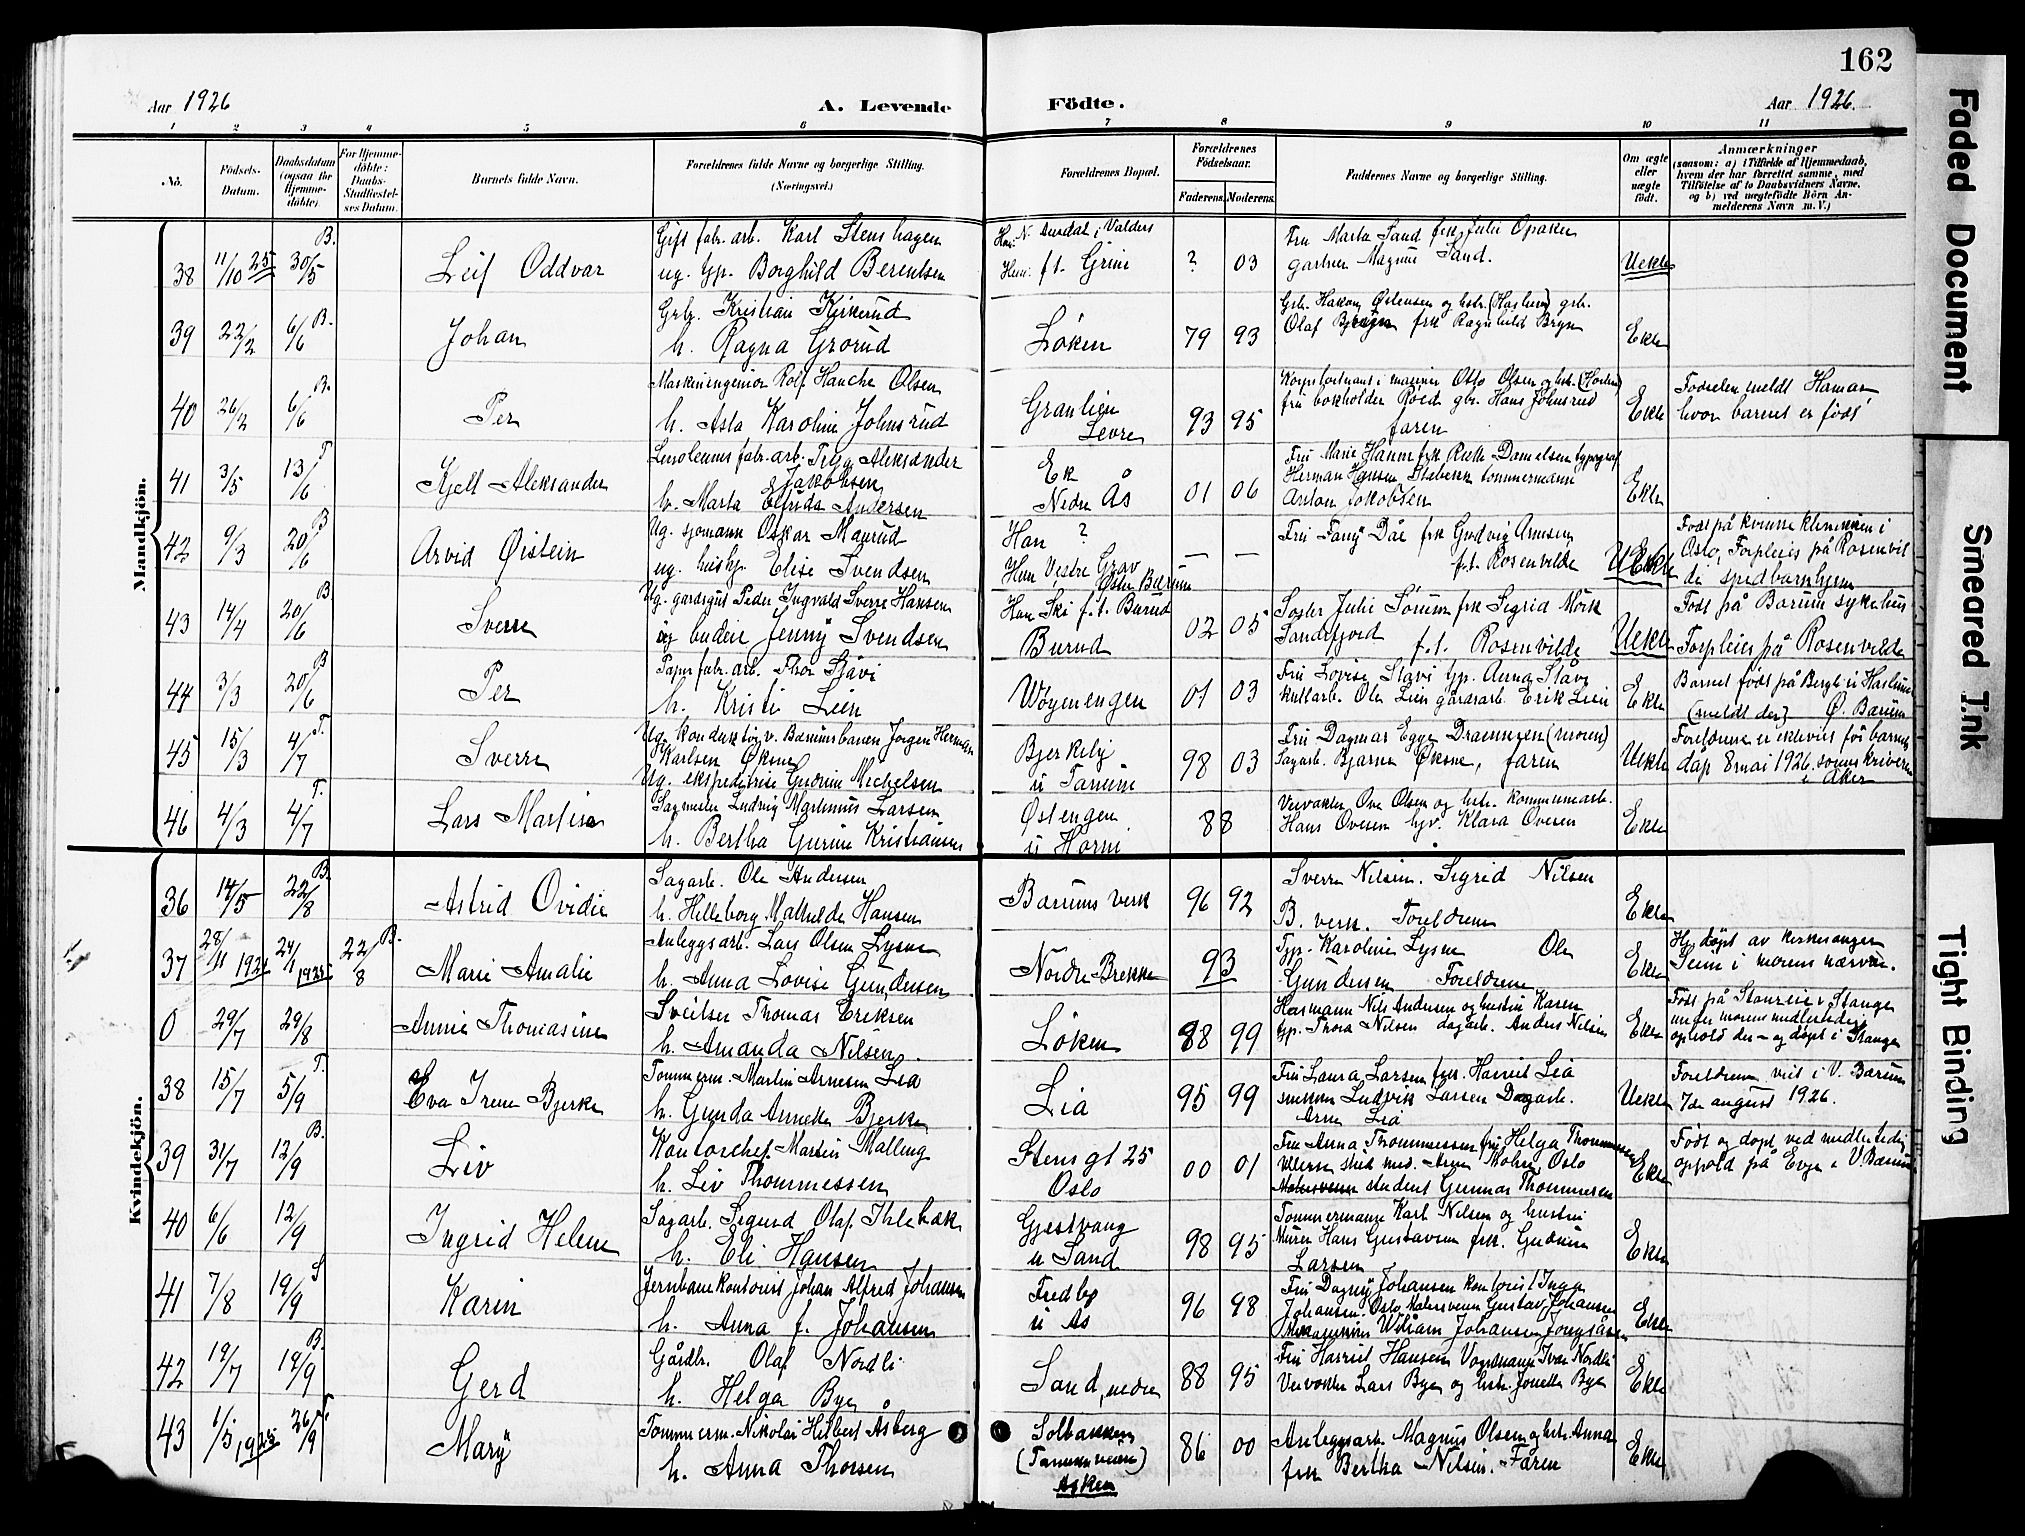 162
Aar 1926
A. Levende
Födte.
Aar 1926.
1 2 3 4 5 6 7 8 9 10 11
No.
Födsels-
Datum.
Daabsdatum
(ogsaa for
Hjemme-
döbte).
For Hjemme-
döbte:
Daabs-
Stadfæstel-
ses Datum.
Barnets fulde Navn.
Forældrenes fulde Navne og borgerlige Stilling.
(Næringsvei.)
Forældrenes Bopæl.
Forældrenes
Födselsaar.
Faderens. Moderens.
Faddernes Navne og borgerlige Stilling.
Om ægte
eller
uægte
født.
Anmærkninger
(saasom: a) i Tilfælde af Hjemmedaab,
hvem der har forrettet samme, med
Tilföielse af to Daabsvidners Navne,
og b) ved uægtefödte Börn An-
melderens Navn m. V.)
Mandkjön.
38 11/10 25 30/5 B. Leif Oddvar
Gift fabr. arb. Karl Stenshagen
ug. tjp. Borghild Berentsen
Han: N. Aurdal i Valdres
Hun: f.t. Grini
? 03
Fru Marta Sand frk Julie Opaker
gartner Magnus Sand.
Uekte
39 22/2 6/6 B. Johan
Grbr. Kristian Kirkerud
h. Ragna Grorud
Løken
79 93
Grb. Hakon Østensen og hstr. (Haslum) grb.
Olaf Bryn frk Ragnhild Bryn
Ekte
40 26/2 6/6 B. Per
Maskiningeniør Rolf Hanche Olsen
h. Asta Karoline Johnsrud
Granlien
Levre
93 95
Kapteinløitnant i marinen Otto Olsen og hstr. (Horten)
fru bokholder Roed gbr. Hans Johnsrud
faren
Ekte
Fødselen meldt Hamar
hvor barnet er født
41 3/5 13/6 T. Kjell Aleksander
Linoleums fabr. arb. Trygve Aleksander
Jakobsen
h. Marta Elfrida Andersen
Ek
Nedre Ås
01 06
Fru Marie Hanm frk Ruth Danielsen typograf
Herman Hansen Stabekk tømmermann
Anton Jakobsen
Ekte
42 9/3 20/6 B Arvid Øistein
Ug. sjømann Oskar Maurud
ug. hushj. Elise Svendsen
Han ?
Hun Vestre Grav
Østre Bærum
— —
Fru Fanny Dåe frk Gudvig Arnesen
f.t. Rosenvilde
Uekte
Født på kvinneklinikken i
Oslo, Forpleies på Rosenvil
de spedbarnhjem
43 14/4 20/6 B Sverre
Ug. gårdsgut Peder Ingvald Sverre Hansen
ug budeie Jenny Svendsen
Han Ski f.t. Burud
Burud
02 05
Søster Julie Sørum frk Sigrid Mørk
Sandefjord f.t. Rosenvilde
Uekte
Født på Bærum sykehus
Forpleies på Rosenvilde
44 3/3 20/6 B Per
Papir fabr. arb. Thor Stavi
h. Kristi Lien
Wøyenengen
01 03
Fru Lovise Stavi tjp. Anna Stav
kullarb. Ole Lien gårdsarb Erik Lien
Ekte
Barnet født på Bergli i Haslum
(meldt der) Ø. Bærum
45 15/3 4/7 T. Sverre
Ug. konduktør v. Bærumsbanen Jørgen Herman
Karlsen Øksne
Ug. ekspeditrise Gudrun Michelsen
Bjerkeby
u Tanum
98 03
Fru Dagmar Egge Drammen (moren)
Sagarb. Bjarne Øksne, faren
Uekte
Foreldrene er ekteviet før barnets
dåp 8 mai 1926 sorenskriveren
i Aker
46 4/3 4/7 T. Lars Martin
Sagmester Ludvig Martinius Larsen
h. Bertha Gurine Kristiansen
Østengen
u Horni
88
Veivokter Ove Olsen og hstr. kommunearb.
Hans Ovesen hgv. Klara Ovesen
Ekte
Kvindekjön.
36 14/5 22/8 B. Astrid Ovidie
Sagarb. Ole Andersen
h. Helleborg Mathilde Hansen
Bærums verk
96 92
Sverre Nilsen. Sigrid Nilsen
B. verk. Foreldrene
Ekte
37 28/11 1924 24/11 1925 22/8 B. Marie Amalie
Anleggsarb. Lars Olsen Lysne
h. Anna Lovise Gundersen
Nordre Brekke
93
Tjp. Karoline Lysne Ole
Gundersen Foreldrene
Ekte
Hj. døpt av kirkesanger
Seim i morens nærvær.
0 29/7 29/8 Annie Thomasine
Sveitser Thomas Eriksen
h. Amanda Nilsen
Løken
98 99
Husmann Nils Andersen og hustru Karen
tjp. Thora Nilsen dagarb. Anders Nilsen
Ekte
Født på Stanreie i Stange
under morens midlertidige
ophold der — og døpt i Stange
38 15/7 5/9 T. Eva Irene Bjerke
Tømmerm. Martin Arnesen Lia
h. Gunda Annette Bjerke
Lia
95 99
Fru Laura Larsen frk. Harriet Lia
snekker Ludvik Larsen Dagarb.
Arne Lia
Uekte
Foreldrene viet i V. Bærum
7de august 1926.
39 31/7 12/9 B. Liv
Kontorchef Martin Malling
h. Liv Thommessen
Stens gt 25
Oslo
00 01
Fru Anna Thommessen fru Helga Thommessen
Ullern stud med. Arne Mohn Oslo
Student Gunnar Thommessen
Ekte
Født og døpt ved midlertidig
opphold på Evje i V. Bærum
40 6/6 12/9 Ingrid Helene
Sagarb. Sigurd Olaf Ihlebæk
h. Eli Hansen
Gjestvang
u Sand
98 95
Tømmermann Karl Nilsen og hustru
Murer Hans Gustavsen frk. Gudrun
Larsen
Ekte
41 7/8 19/9 S Karin
Jernbanekontorist Johan Alfred Johansen
h. Anna f. Johansen
Fredbo
u As
96 98
Fru Dagny Johansen kontorist Inga
Johansen. Oslo Malersvenn Gustav Johansen
Wiliam Johansen Jongsåsen
Ekte
42 19/7 19/9 B. Gerd
Gårdbr. Olaf Nordli
h. Helga Bye
Sand, nedre
88 95
Fru Harriet Hansen Vognmann Ivar Nordli
Veivokter Lars Bye og hstr. Jonette Bye
Ekte
43 1/5 1925 26/9 T. Mary
Tømmerm. Nikolai Hilbert Åsberg
h. Anna Thorsen
Solbakken
(Tanumveien)
Asker
86 00
Anleggsarb. Magnus Olsen og hstr. Anna
frk Bertha Nilsen. Faren
Ekte
Faded Document
Smeared Ink
Tight Binding